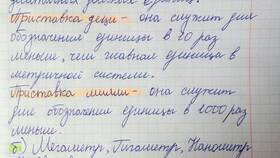 десятичной дольных единиц.
Приставка деци - она служит для
обозначения единицы в 10 раз
меньше, чем главная единица в
метричной системе.
Приставка милли - она служит
для обозначения единицы в 1000 раз
меньше.
Мегаметр, Гигаметр, Нанометр